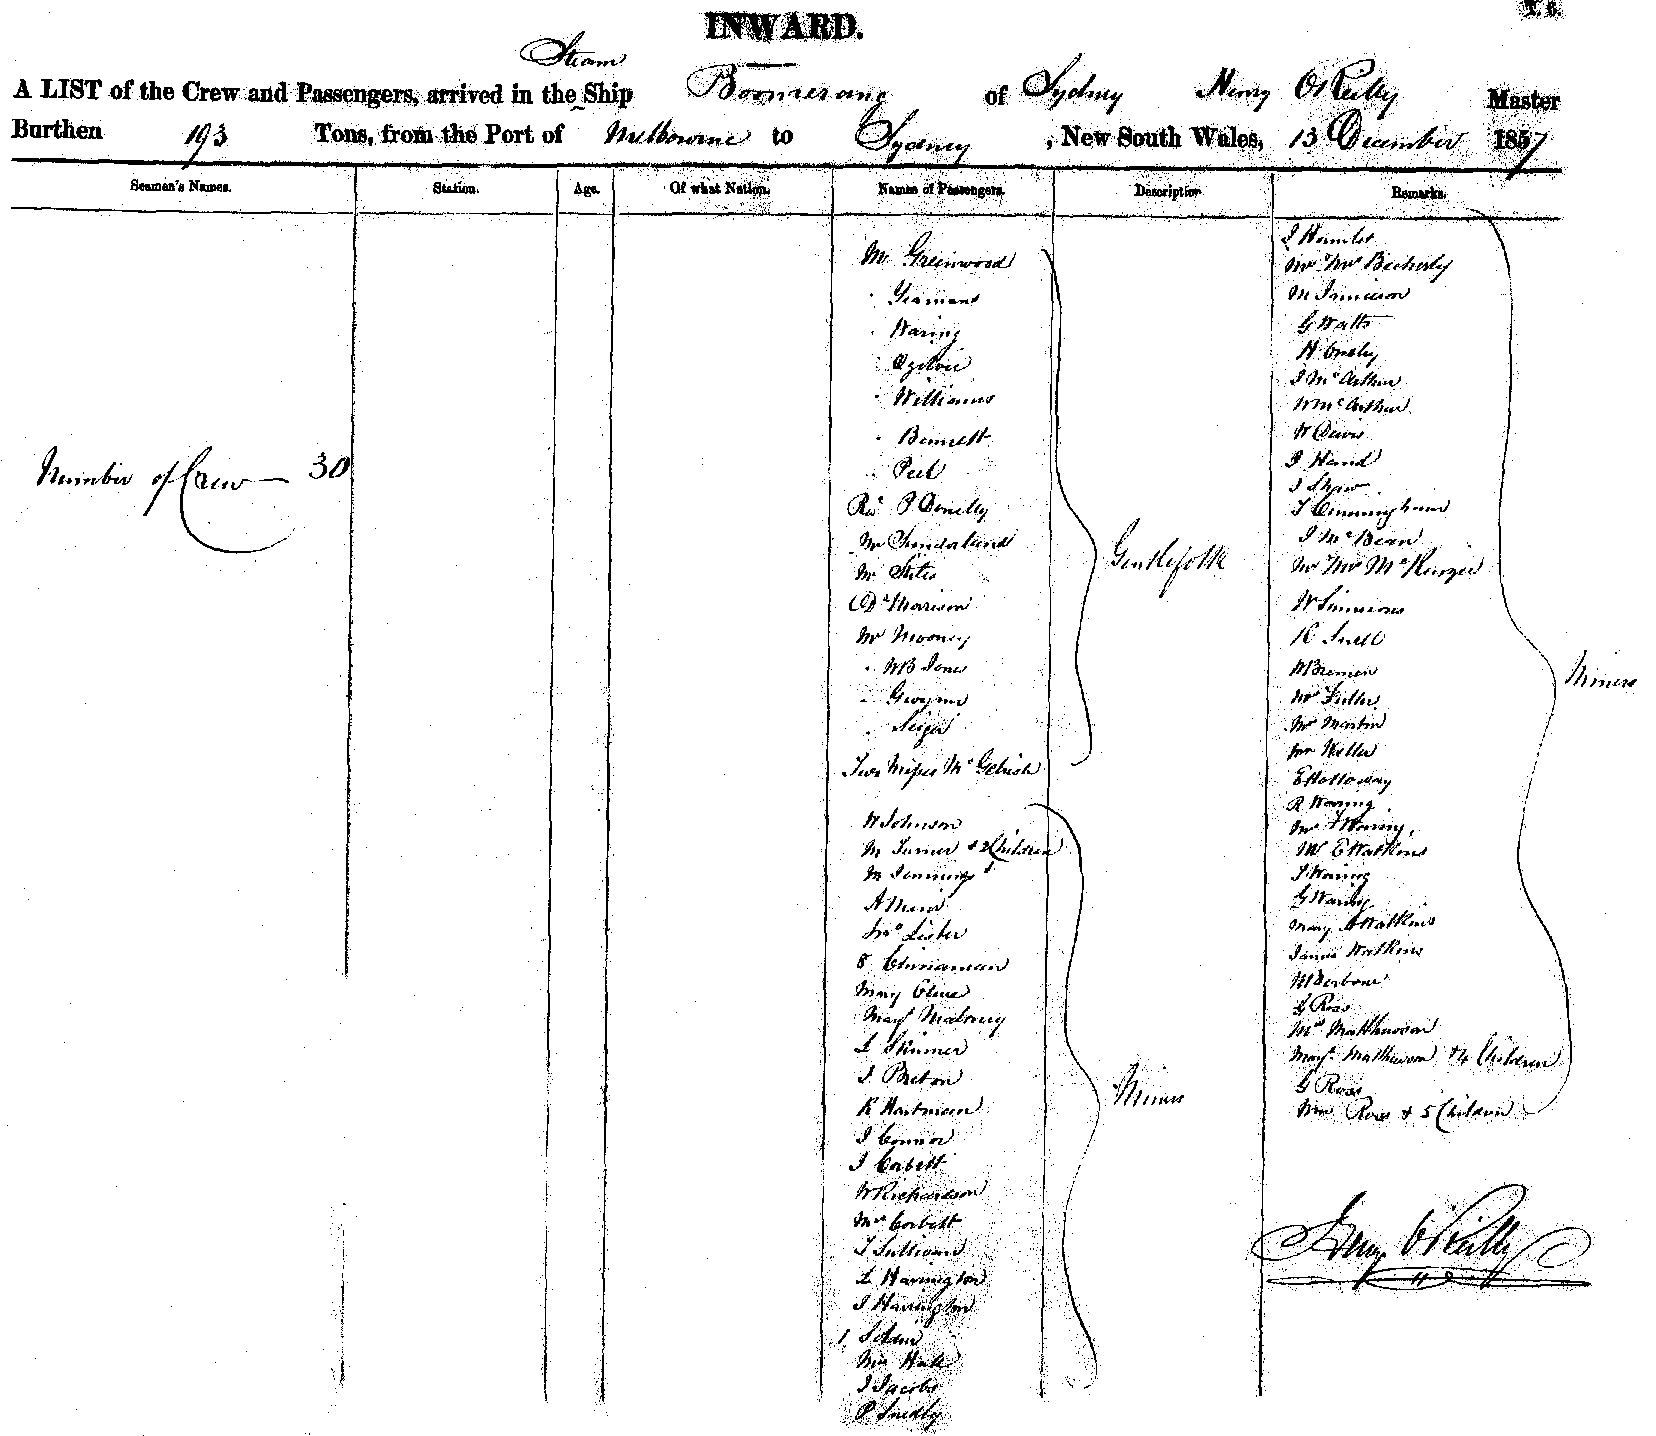 INWARD.
Steam
A LIST of the Crew and Passengers, arrived in the Ship Boomerang of Sydney Henry O'Reilly Master
Burthen 193 Tons, from the Port of Melbourne to Sydney, New South Wales, 13 December 1857
Seamen's Names. Station. Age. Of what Nation. Names of Passengers. Description Remarks.
Number of Crew — 30
Mr Greenwood
" Yeamans
" Waring
" Ogilvie
" Williams
" Bennett
" Peel
Revd P Donelly
Mr Sunderland
Mr Stiles
Dr Marison
Mr Mooney
" WB Jones
" Gwynne
"
Two Misses
Gentlefolk
W Johnson
M Turner + 2 Children
M Jennings
A Main
Mrs Lister
8 Chinaman
Mary Cline
Mary Maloney
L Skinner
J Breton
K Hartman
J Connor
J Corbett
W Richardson
Mrs Corbett
T Sullivan
L Harrington
J Harrington
J Adam
Mrs Hale
J Jacobs
P Smedly
Miners
J Hamlet
Mr Mrs Beckerly
M Jamieson
G Watts
H
J McArthur
W McArthur
W Davis
J Hand
J Shaw
T Cunningham
J McBean
Mr Mrs McKenzie
W Simmons
R Snell
W Bremen
Mr Fuller
Mr Martin
Mr Keller
E Holloway
R Waring
Mr F Waring
Mr E Watkins
J Waring
G Waring
Mary A Watkins
James Watkins
M
G Ross
Mrs Matthewson
Mary Matthewson + 4 Children
G Ross
Mrs Ross + 5 Children
Miners
Henry O'Reilly